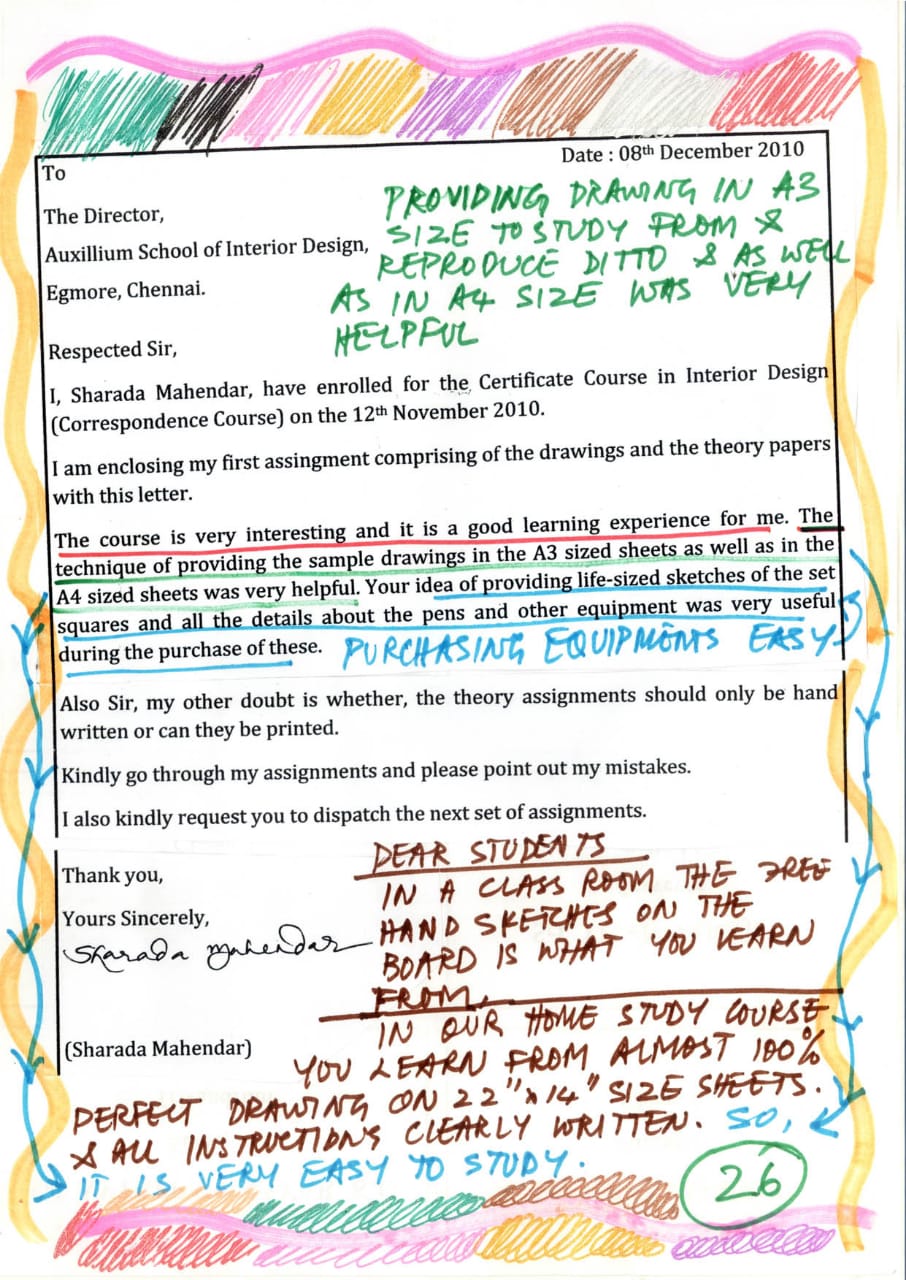 Date : 08th December 2010
To
The Director,
Auxillium School of Interior Design,
Egmore, Chennai.
PROVIDING DRAWING IN A3
SIZE TO STUDY FROM &
REPRODUCE DITTO & AS WELL
AS IN A4 SIZE WAS VERY
HELPFUL
Respected Sir,
I, Sharada Mahendar, have enrolled for the Certificate Course in Interior Design
(Correspondence Course) on the 12th November 2010.
I am enclosing my first assingment comprising of the drawings and the theory papers
with this letter.
The course is very interesting and it is a good learning experience for me. The
technique of providing the sample drawings in the A3 sized sheets as well as in the
A4 sized sheets was very helpful. Your idea of providing life-sized sketches of the set
squares and all the details about the pens and other equipment was very useful
during the purchase of these. PURCHASING EQUIPMENTS EASY
Also Sir, my other doubt is whether, the theory assignments should only be hand
written or can they be printed.
Kindly go through my assignments and please point out my mistakes.
I also kindly request you to dispatch the next set of assignments.
Thank you,
Yours Sincerely,
Sharada Mahendar
(Sharada Mahendar)
DEAR STUDENTS
IN A CLASS ROOM THE FREE
HAND SKETCHES ON THE
BOARD IS WHAT YOU LEARN
FROM.
IN OUR HOME STUDY COURSE
YOU LEARN FROM ALMOST 100%
PERFECT DRAWING ON 22" x 14" SIZE SHEETS.
& ALL INSTRUCTIONS CLEARLY WRITTEN. SO,
IT IS VERY EASY TO STUDY.
26